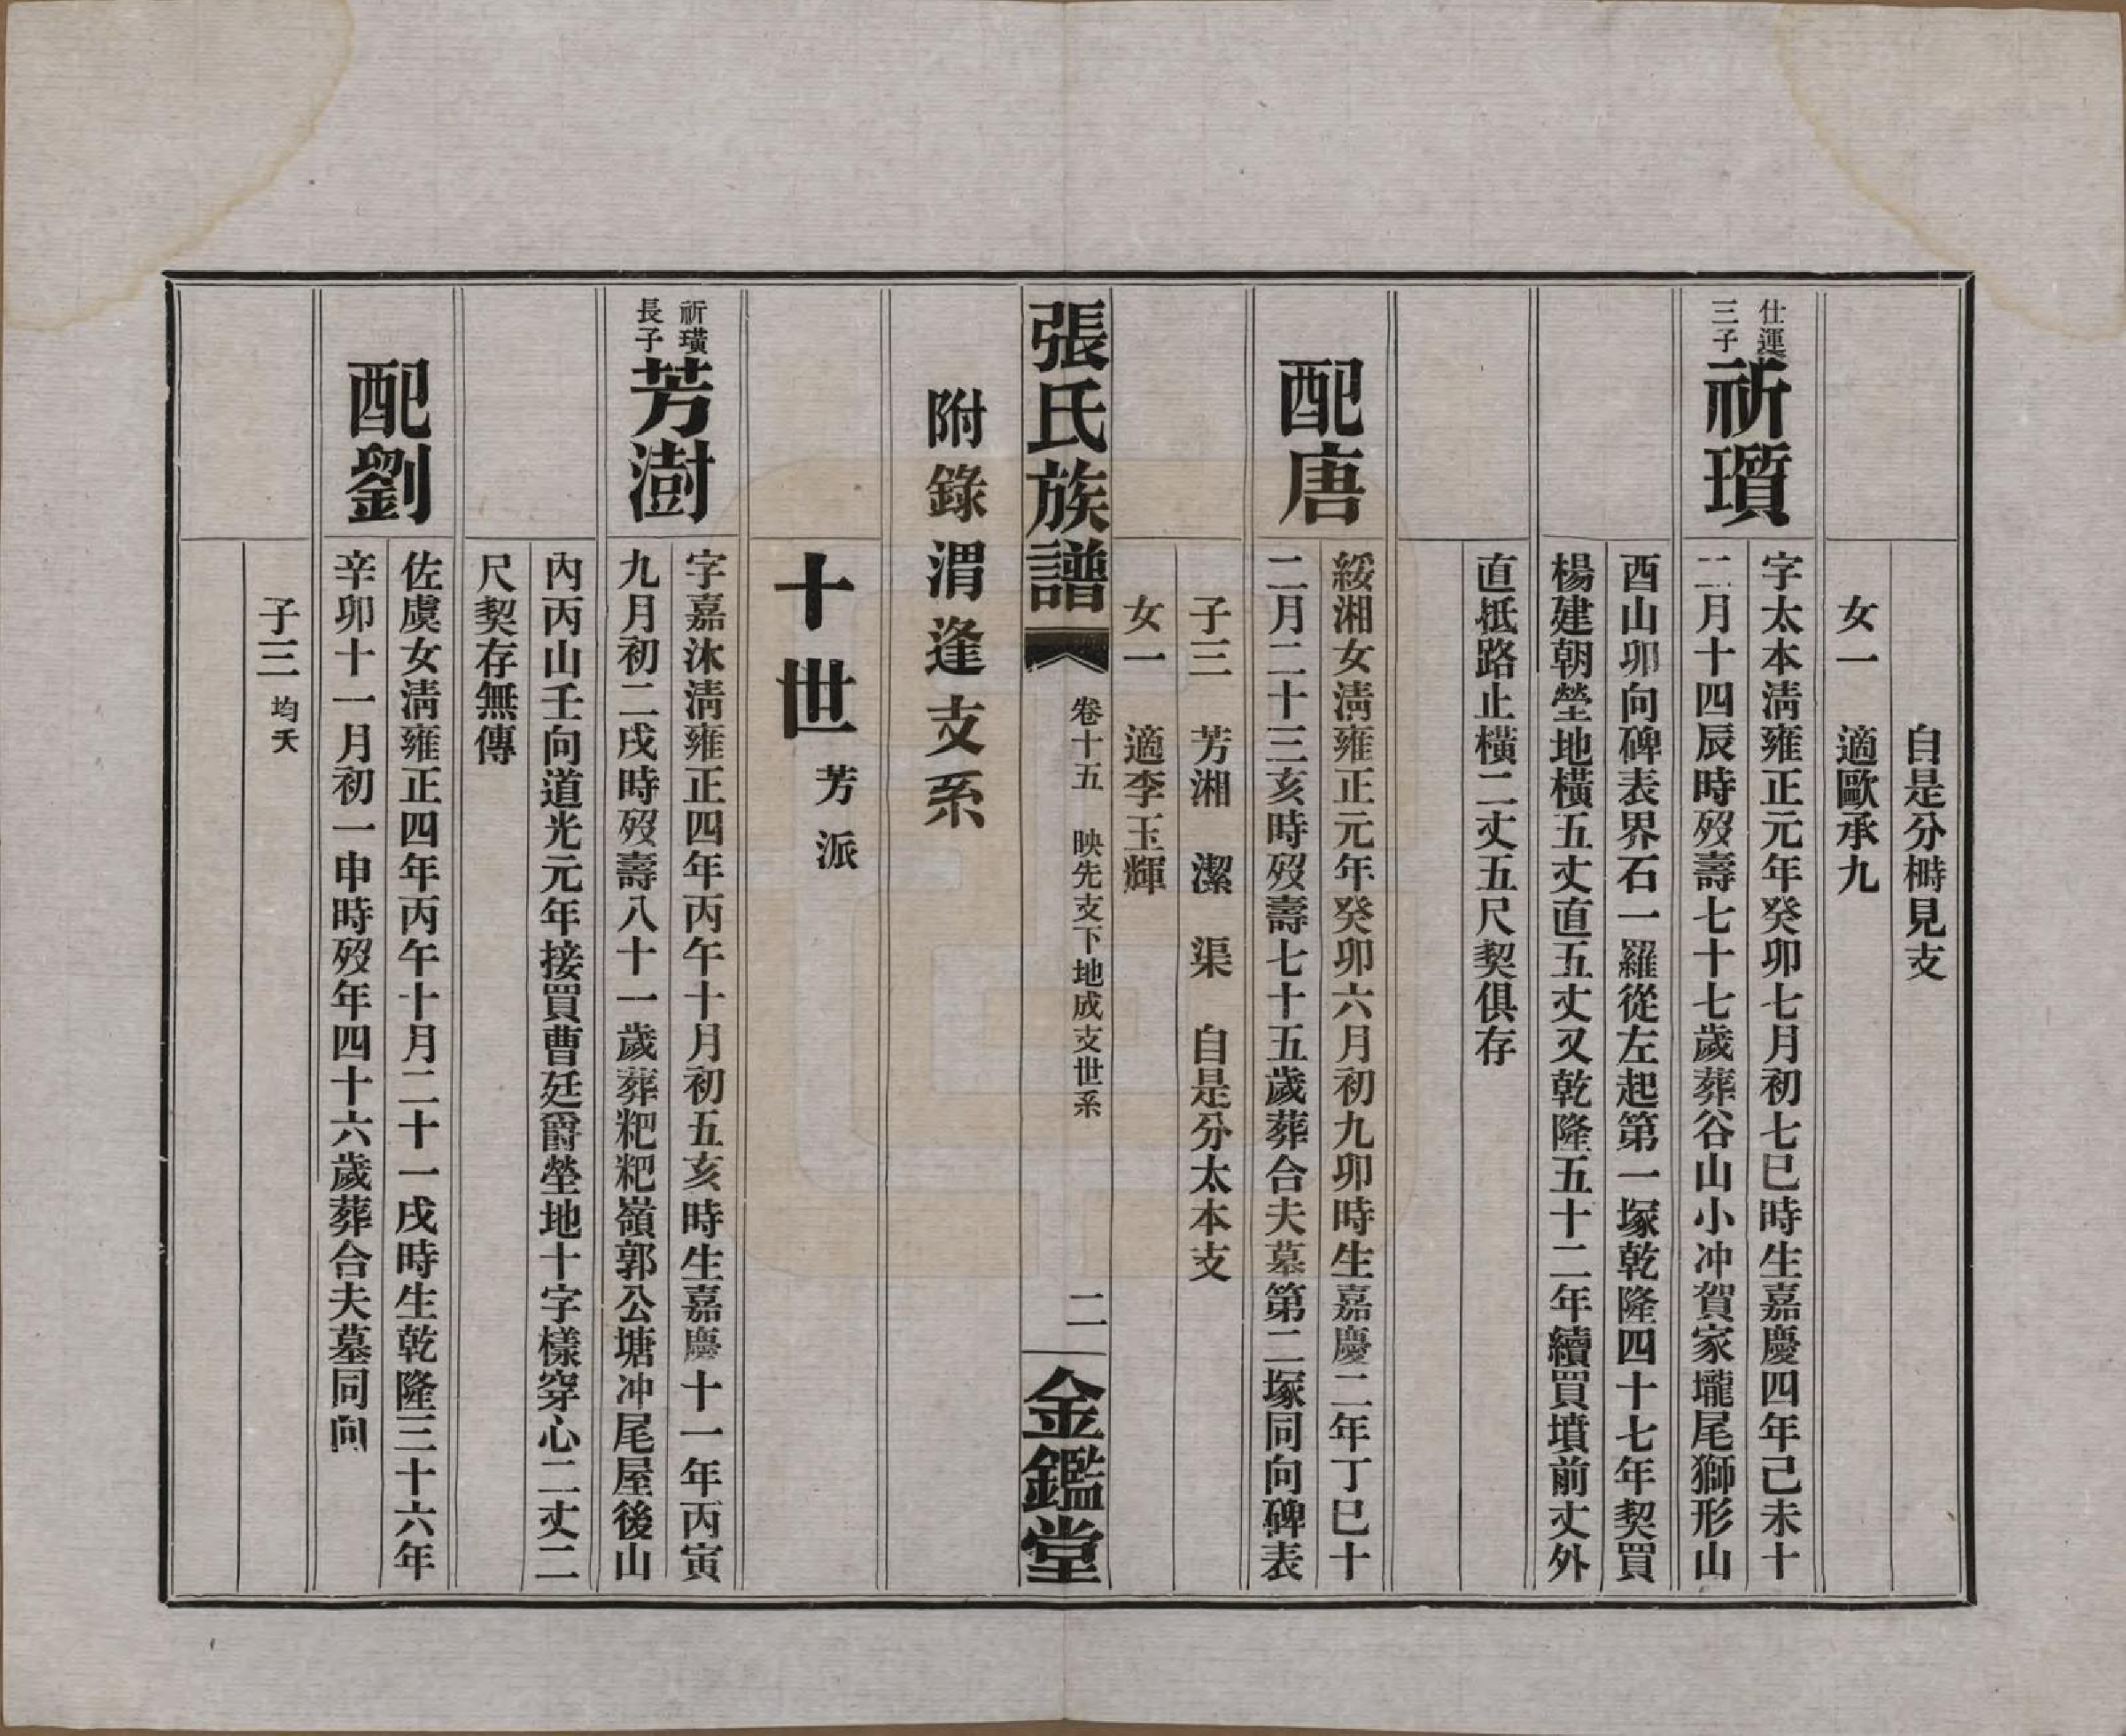 自是分榯見支
女一　適歐承九
仕運三子
祈璸
字太本淸雍正元年癸卯七月初七巳時生嘉慶四年己未十
二月十四辰時歿壽七十七歲葬谷山小冲賀家壠尾獅形山
酉山卯向碑表界石一羅從左起第一塚乾隆四十七年契買
楊建朝塋地橫五丈直五丈又乾隆五十二年續買墳前丈外
直抵路止橫二丈五尺契俱存
配唐
綏湘女淸雍正元年癸卯六月初九卯時生嘉慶二年丁巳十
二月二十三亥時歿壽七十五歲葬合夫墓第二塚同向碑表
子三　芳湘　潔　渠　自是分太本支
女一　適李玉輝
張氏族譜
卷十五　映先支下地成支世系
二
金鑑堂
附錄渭逢支系
十世 芳派
祈璜長子
芳澍
字嘉沐淸雍正四年丙午十月初五亥時生嘉慶十一年丙寅
九月初二戌時歿壽八十一歲葬粑粑嶺郭公塘冲尾屋後山
內丙山壬向道光元年接買曹廷爵塋地十字樣穿心二丈二
尺契存無傳
配劉
佐虞女淸雍正四年丙午十月二十一戌時生乾隆三十六年
辛卯十一月初一申時歿年四十六歲葬合夫墓同向
子三 均夭